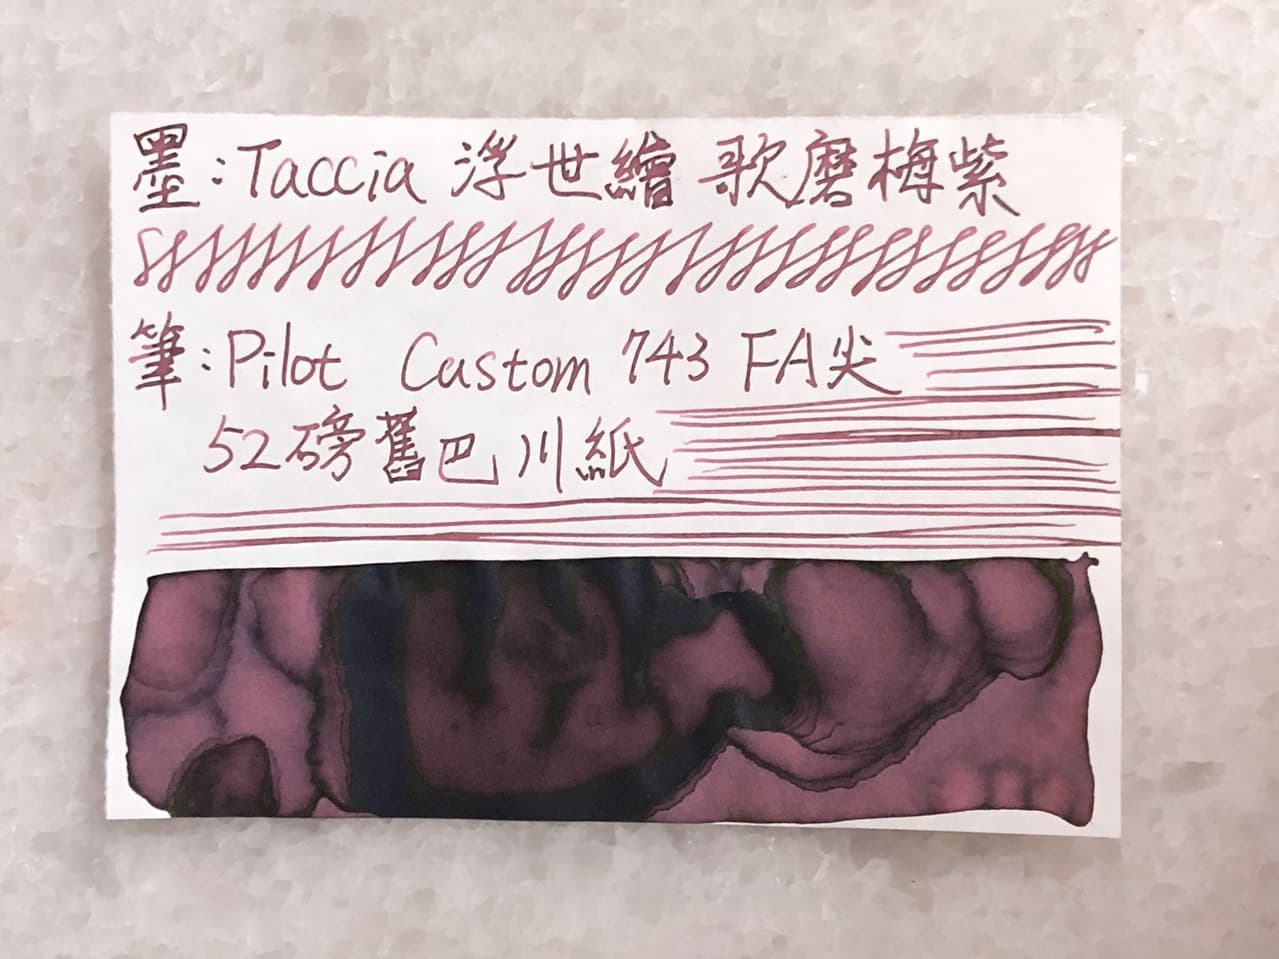 墨:Taccia 浮世繪 歌磨梅紫
筆:Pilot Custom 743 FA尖
52磅舊巴川紙